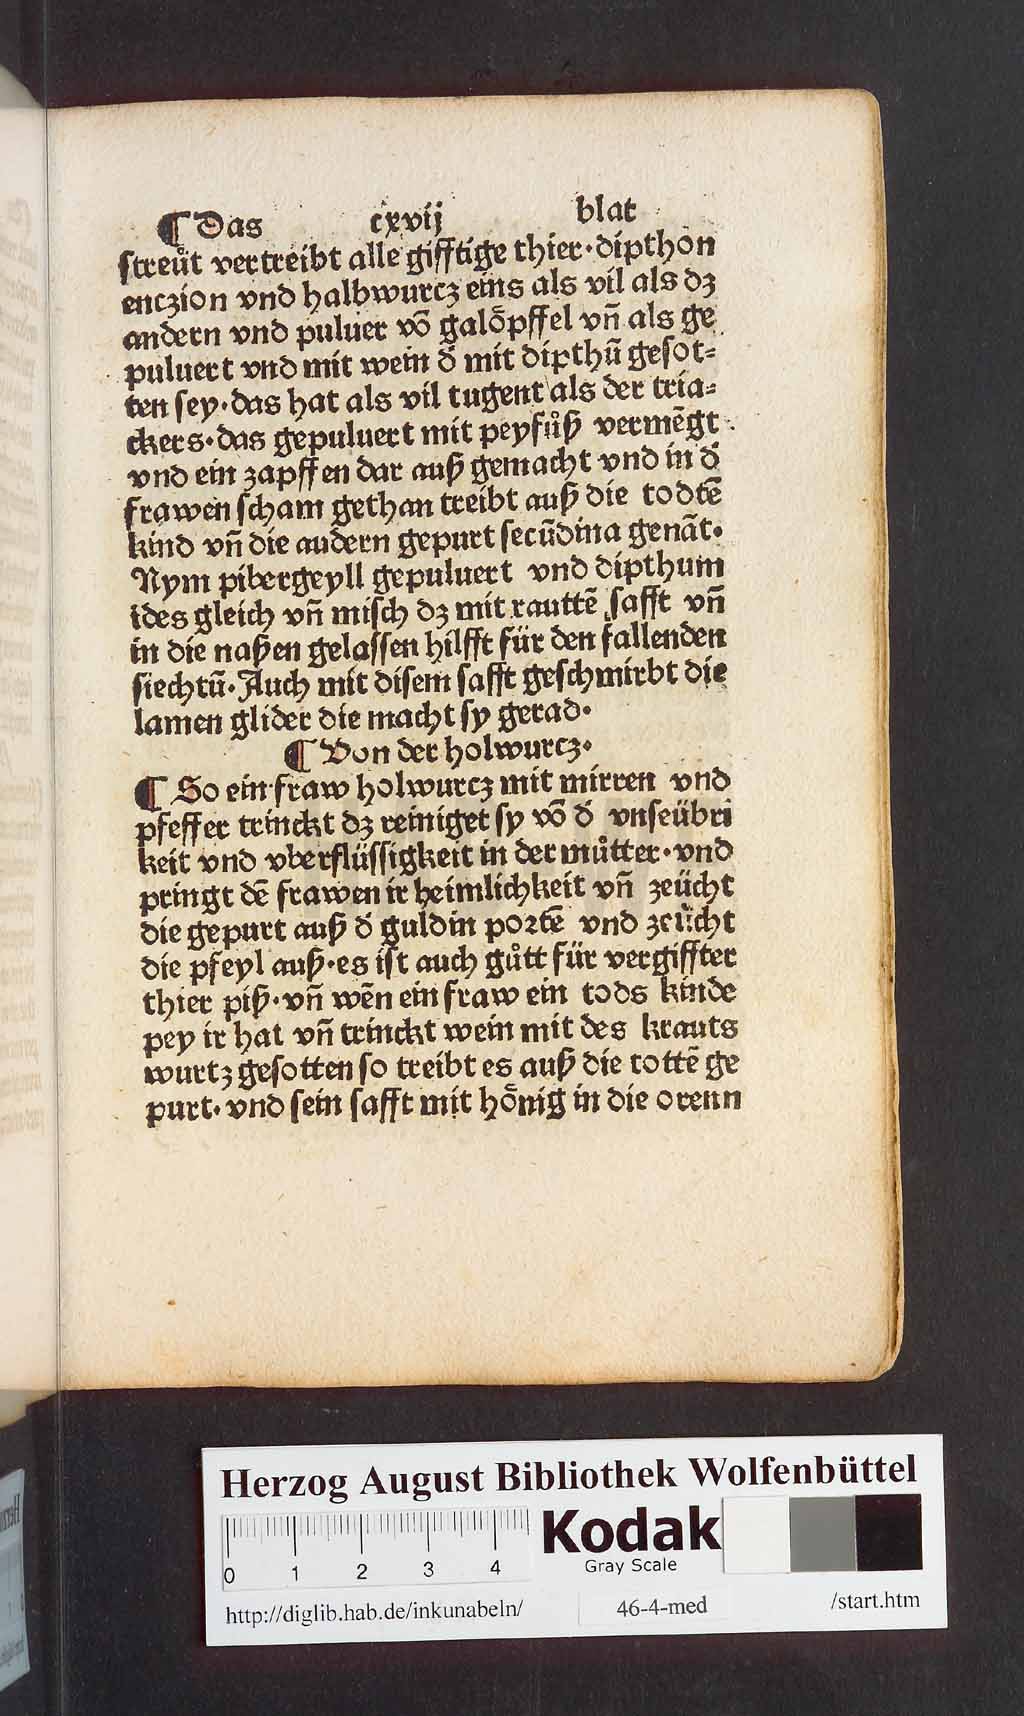 ¶ Das cxvij blat
streüt vertreibt alle gifftige thier·dipthon
enczion vnd halbwurcz eins als vil als dz
andern vnd puluer võ galöpffel vñ als ge
puluert vnd mit wein d̄ mit dipthū gesot⸗
ten sey·das hat als vil tugent als der tria⸗
ckers·das gepuluert mit peyfůß vermēgt
vnd ein zapffen dar auß gemacht vnd in d̄
frawen scham gethan treibt auß die todtē
kind vñ die andern gepurt secūdina genāt·
Nym pibergeyll gepuluert vnd dipthum
ides gleich vñ misch dz mit rauttē safft vñ
in die naßen gelassen hilfft für den fallenden
siechtū·Auch mit disem safft geschmirbt die
lamen glider die macht sy gerad·
¶ Von der holwurcz·
¶ So ein fraw holwurcz mit mirren vnd
pfeffer trinckt dz reiniget sy võ d̄ vnseübri
keit vnd vberflüssigkeit in der můtter·vnd
pringt dē frawen ir heimlichkeit vñ zeücht
die gepurt auß d̄ guldin portē vnd zeücht
die pfeyl auß·es ist auch gůtt für vergiffter
thier piß·vñ wēn ein fraw ein tods kinde
pey ir hat vñ trinckt wein mit des krauts
wurtz gesotten so treibt es auß die tottē ge
purt·vnd sein safft mit hönig in die orenn
Herzog August Bibliothek Wolfenbüttel
0 1 2 3 4
Kodak
Gray Scale
http://diglib.hab.de/inkunabeln/ 46-4-med /start.htm